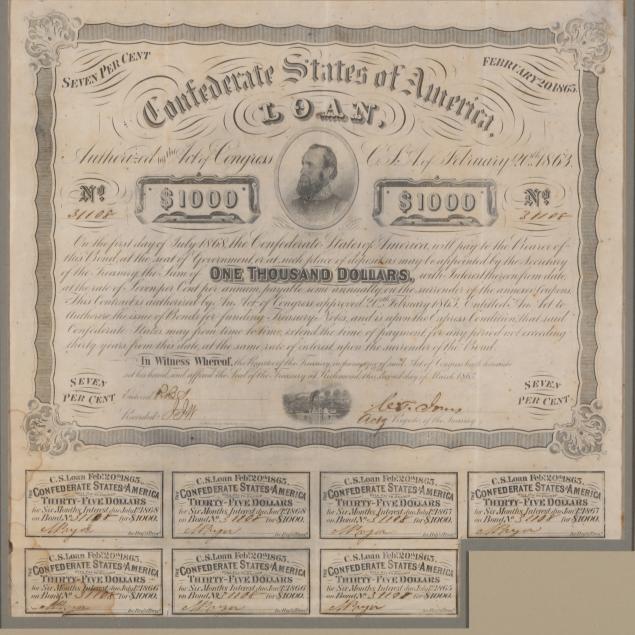 SEVEN PER CENT
FEBRUARY 20, 1863.
Confederate States of America.
LOAN,
Authorized by the Act of Congress C.S.A. of February 20th 1863.
No $1000 $1000 No
31108 31108
On the first day of July 1868, the Confederate States of America, will pay to the Bearer of
this Bond, at the Seat of Government or at such place of deposit as may be appointed by the Secretary
of the Treasury, the Sum of ONE THOUSAND DOLLARS, with Interest thereon from date,
at the rate of Seven per Cent per annum, payable semi-annually on surrender of the annexed Coupons.
This Contract is authorized by An Act of Congress approved 20th February 1863. Entitled An Act to
Authorize the issue of Bonds for funding Treasury Notes, and is upon the Express Condition that said
Confederate States may from time to time, extend the time of payment for any period not exceeding
thirty years from this date, at the same rate of interest upon the surrender of the Bond.
In Witness Whereof, the Register of the Treasury, in pursuance of said Act of Congress hath hereunto
set his hand, and affixed the Seal of the Treasury at Richmond, this Second day of March 1863.
SEVEN PER CENT
SEVEN PER CENT
Entered
Recorded
Actg Register of the Treasury
C.S. Loan Feb. 20th 1863.
THE CONFEDERATE STATES OF AMERICA
THIRTY-FIVE DOLLARS
for Six Months Interest due July 1st 1868
on Bond No 31108 for $1000.
C.S. Loan Feb. 20th 1863.
THE CONFEDERATE STATES OF AMERICA
THIRTY-FIVE DOLLARS
for Six Months Interest due Jany 1st 1868
on Bond No 31108 for $1000.
C.S. Loan Feb. 20th 1863.
THE CONFEDERATE STATES OF AMERICA
THIRTY-FIVE DOLLARS
for Six Months Interest due July 1st 1867
on Bond No 31108 for $1000.
C.S. Loan Feb. 20th 1863.
THE CONFEDERATE STATES OF AMERICA
THIRTY-FIVE DOLLARS
for Six Months Interest due Jany 1st 1867
on Bond No 31108 for $1000.
C.S. Loan Feb. 20th 1863.
THE CONFEDERATE STATES OF AMERICA
THIRTY-FIVE DOLLARS
for Six Months Interest due July 1st 1866
on Bond No 31108 for $1000.
C.S. Loan Feb. 20th 1863.
THE CONFEDERATE STATES OF AMERICA
THIRTY-FIVE DOLLARS
for Six Months Interest due Jany 1st 1866
on Bond No 31108 for $1000.
C.S. Loan Feb. 20th 1863.
THE CONFEDERATE STATES OF AMERICA
THIRTY-FIVE DOLLARS
for Six Months Interest due July 1st 1865
on Bond No 31108 for $1000.